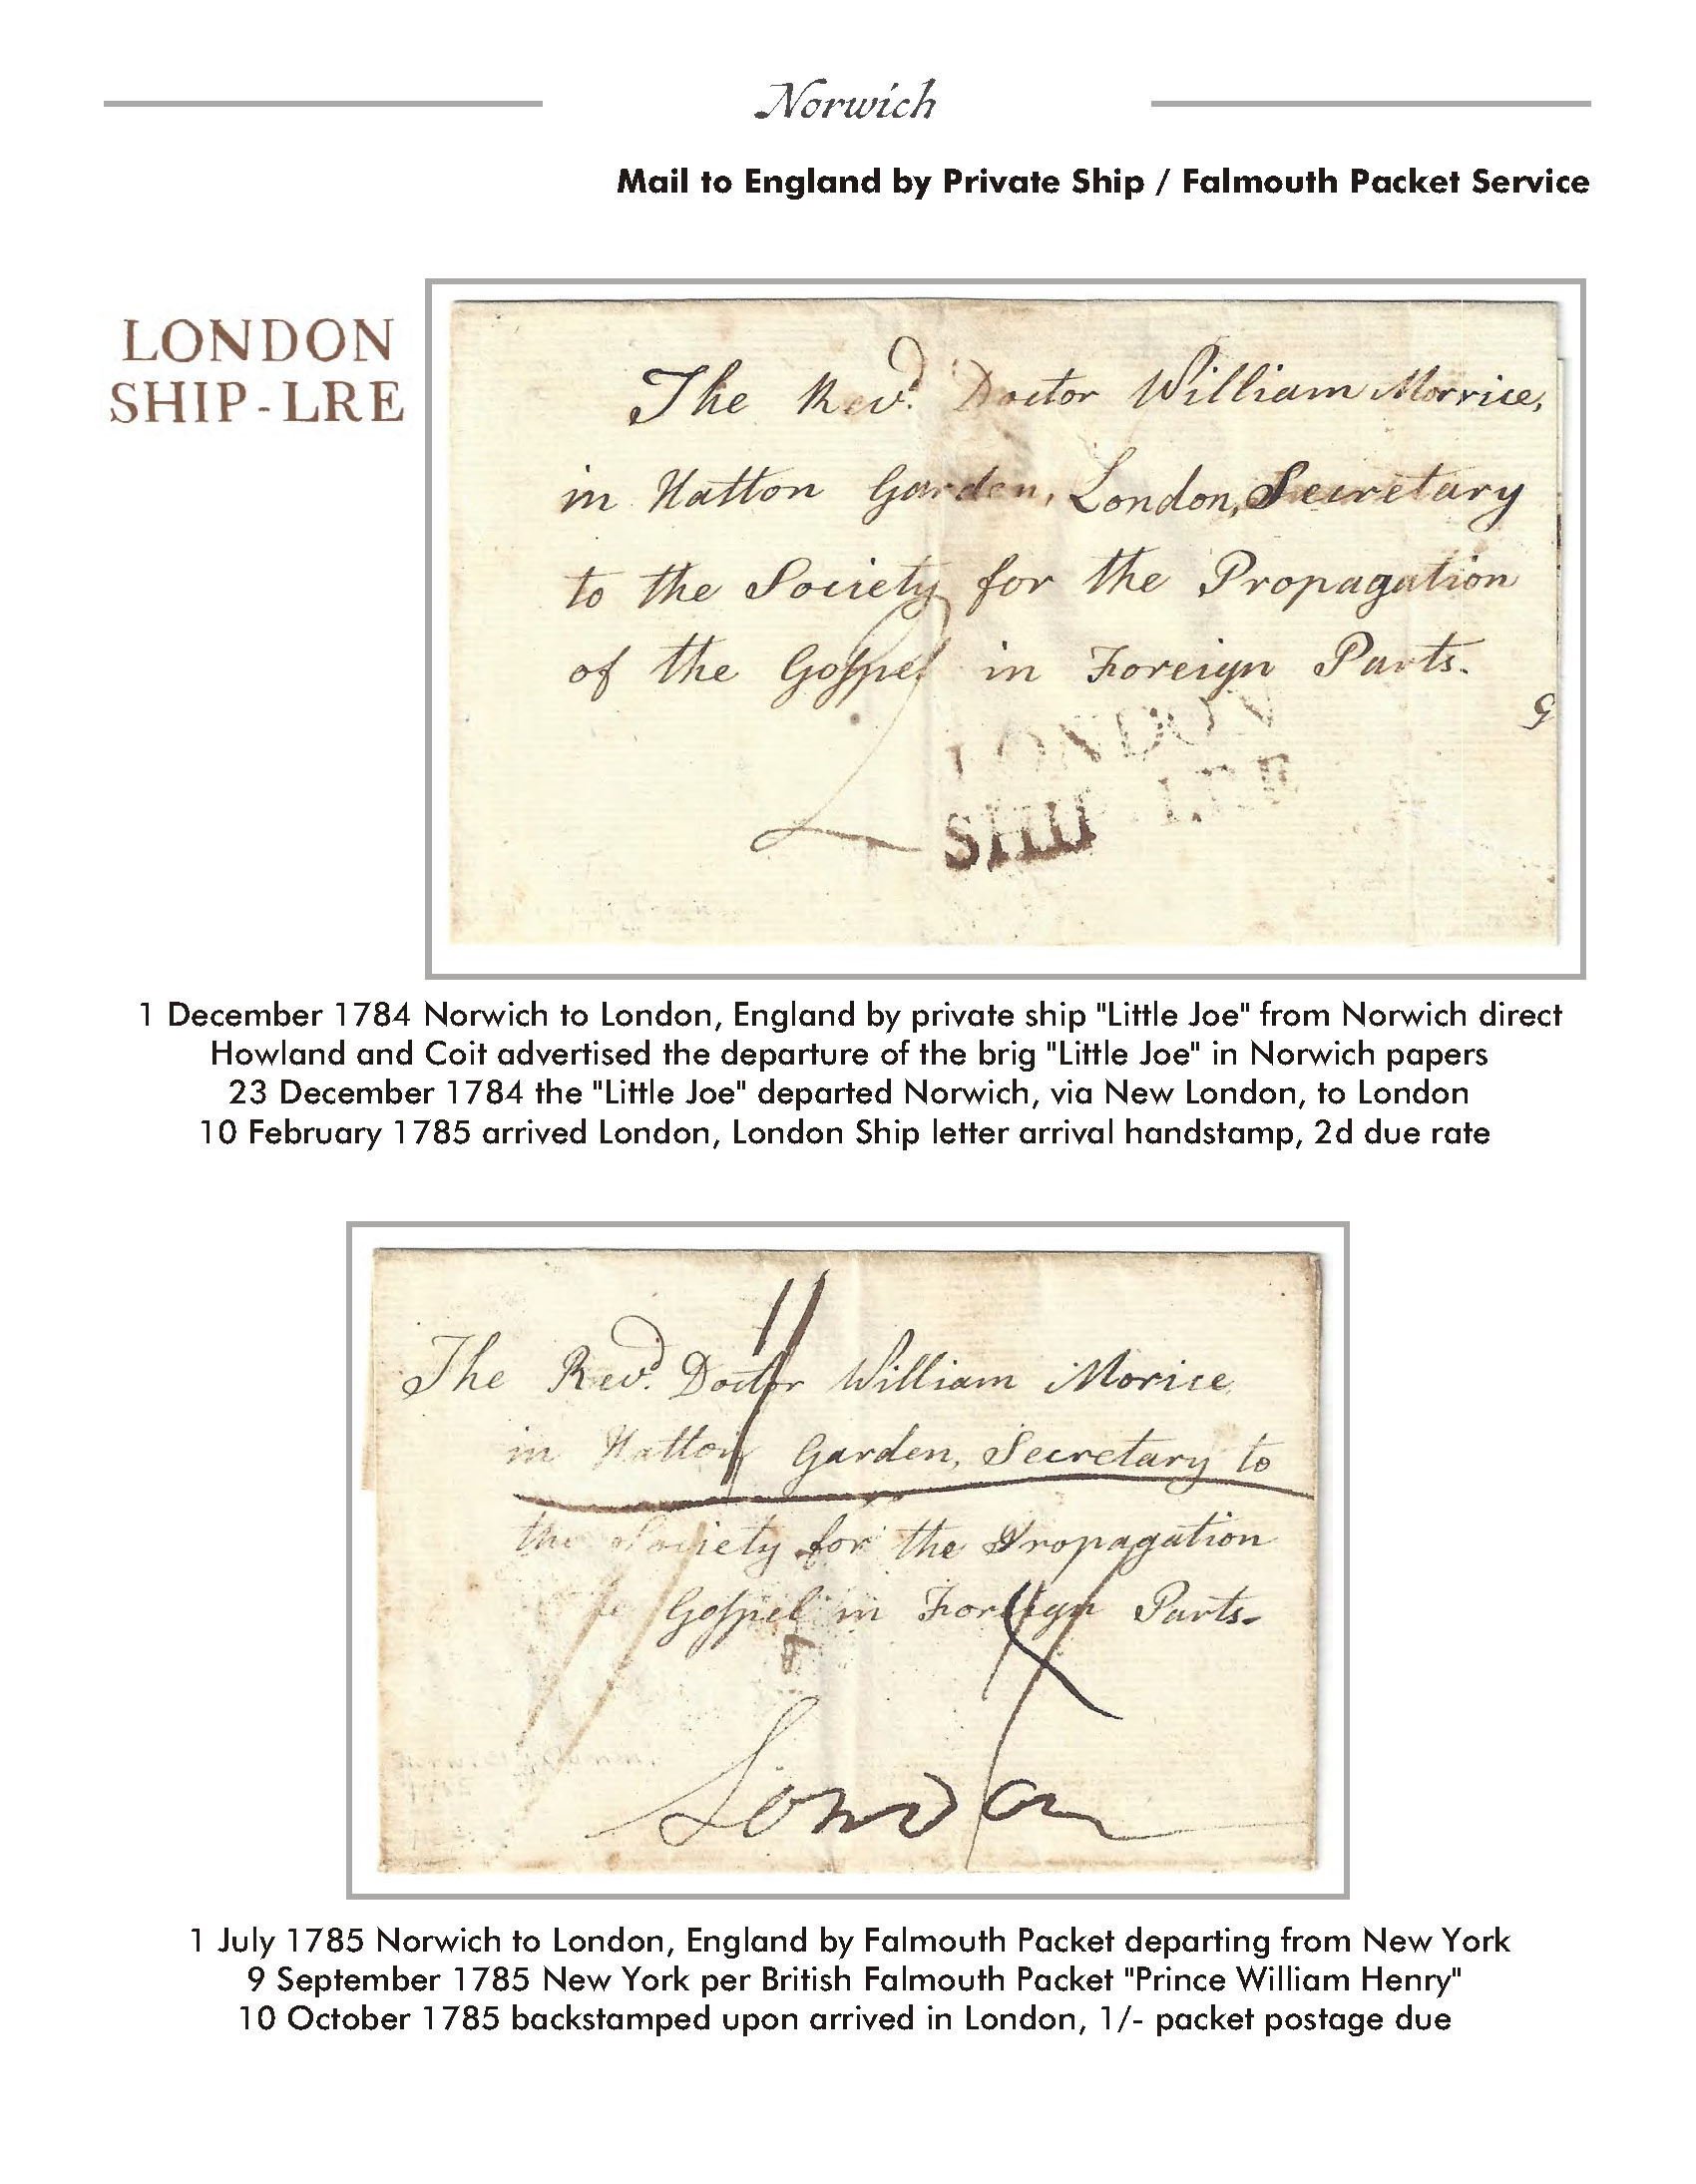 Norwich
Mail to England by Private Ship / Falmouth Packet Service
LONDON
SHIP-LRE
The Revd. Doctor William Morrice,
in Hatton Garden, London, Secretary
to the Society for the Propagation
of the Gospel in Foreign Parts.
2
LONDON
SHIP LRE
1 December 1784 Norwich to London, England by private ship "Little Joe" from Norwich direct
Howland and Coit advertised the departure of the brig "Little Joe" in Norwich papers
23 December 1784 the "Little Joe" departed Norwich, via New London, to London
10 February 1785 arrived London, London Ship letter arrival handstamp, 2d due rate
The Revd. Doctor William Morice
in Hatton Garden, Secretary to
the Society for the Propagation
Gospel in Foreign Parts.
London
1 July 1785 Norwich to London, England by Falmouth Packet departing from New York
9 September 1785 New York per British Falmouth Packet "Prince William Henry"
10 October 1785 backstamped upon arrived in London, 1/- packet postage due